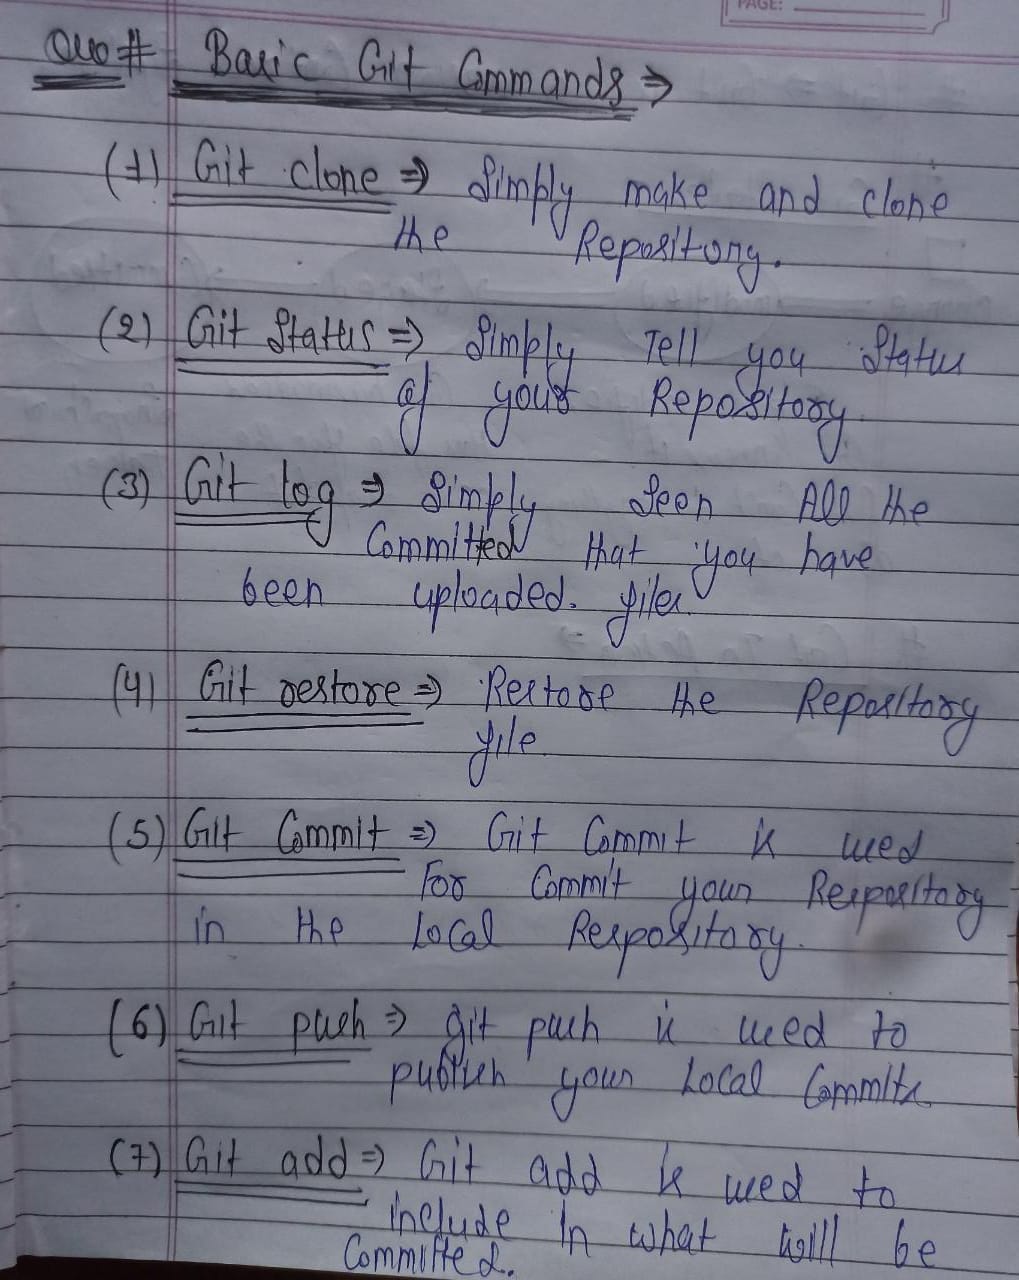 PAGE:
Que # Basic Git Commands ⇒
(1) Git clone ⇒ Simply make and clone
the Repository.
(2) Git Status ⇒ Simply Tell you Status
of your Repository.
(3) Git log ⇒ Simply Seen All the
Committed that you have
been uploaded. files.
(4) Git restore ⇒ Restore the Repository
file.
(5) Git Commit ⇒ Git Commit is used
For Commit your Respository
in the Local Respository.
(6) Git push ⇒ git push is used to
publish your Local Commits.
(7) Git add ⇒ Git add is used to
include in what will be
Committed.